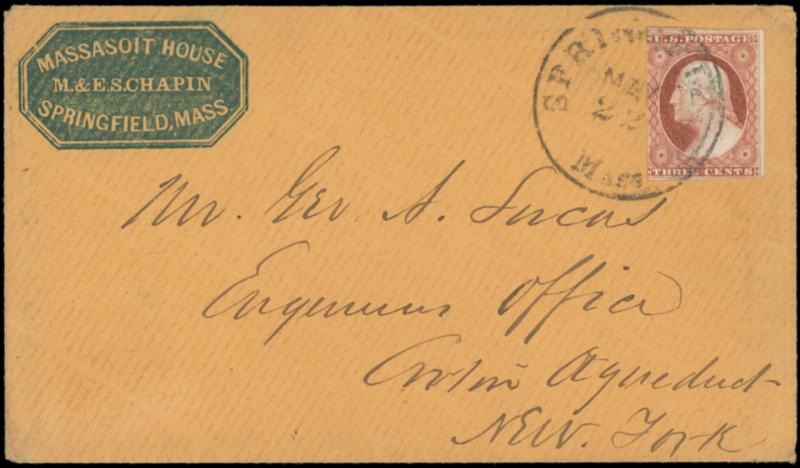 MASSASOIT HOUSE
M. & E. S. CHAPIN
SPRINGFIELD, MASS
SPRIN
MAY
22
MASS
U.S. POSTAGE
THREE CENTS
Mr. Geo A. Lucas
Engineers Office
Croton Aqueduct
New. York